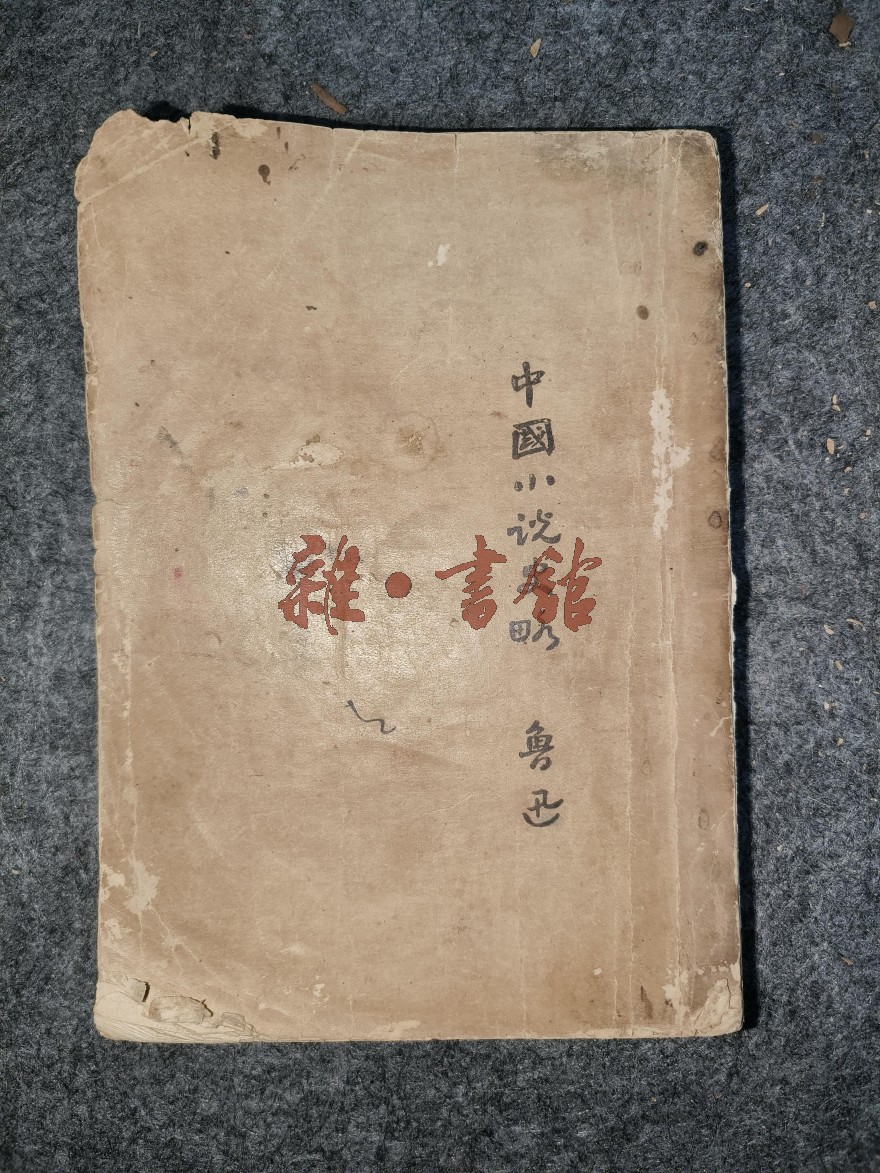 中國小说史略 魯迅
雜·書館